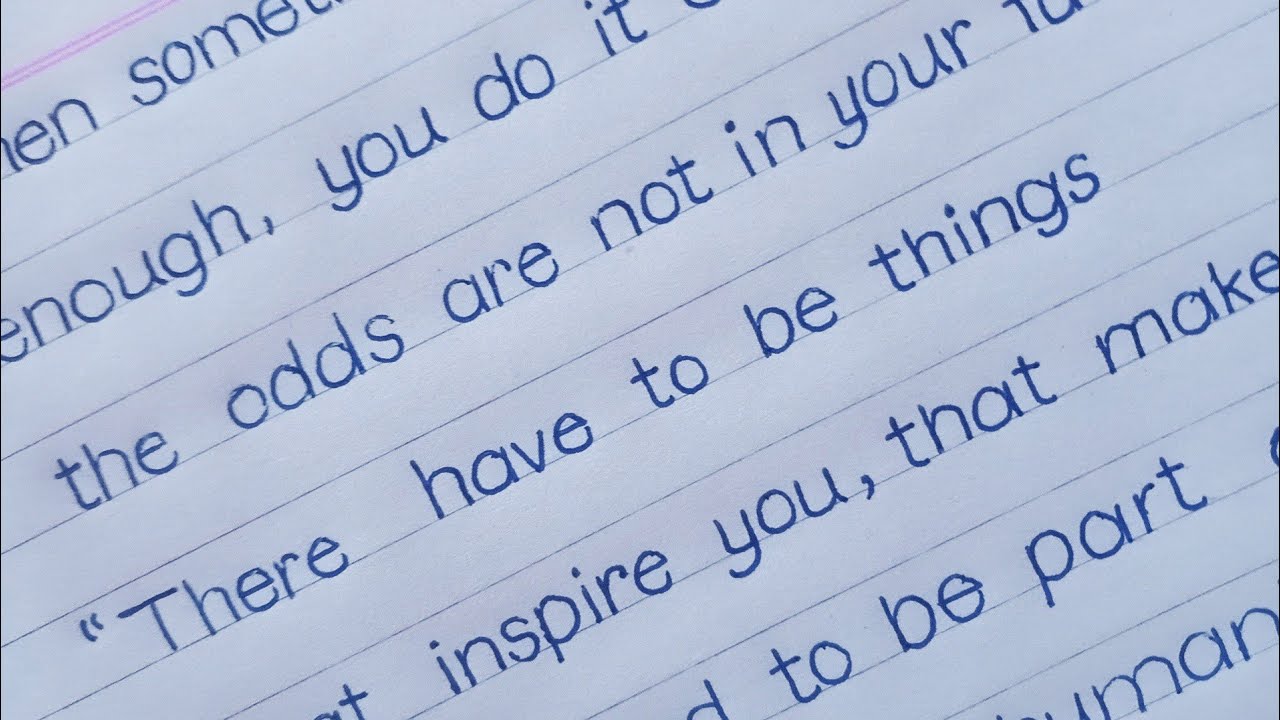 someth
enough, you do it
the odds are not in your
"There have to be things
inspire you, that make
to be part
human